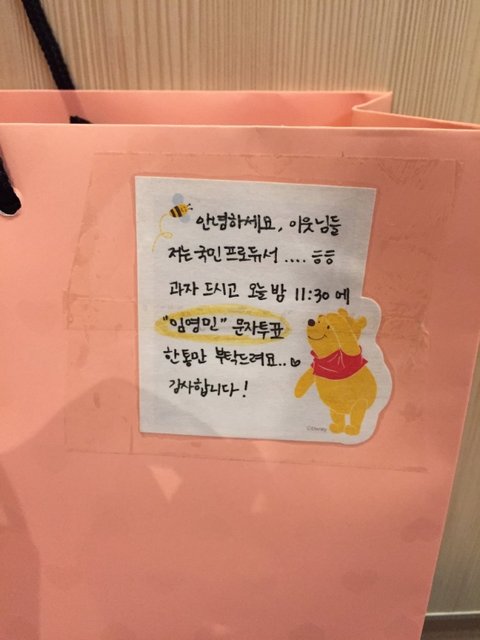 안녕하세요, 이웃님들
저는 국민프로듀서 .... 등등
과자 드시고 오늘 밤 11:30 에
"임영민" 문자투표
한통만 부탁드려요..♥
감사합니다!
©Disney